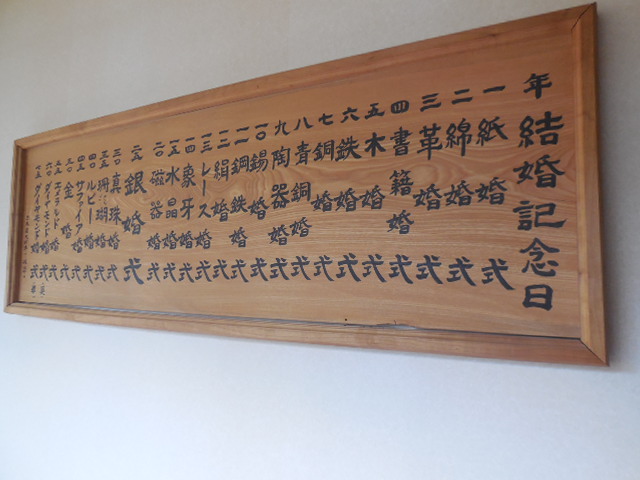 結婚記念日
年
一 紙婚式
二 綿婚式
三 革婚式
四 書籍婚式
五 木婚式
六 鉄婚式
七 銅婚式
八 青銅婚式
九 陶器婚式
一〇 錫婚式
一一 鋼鉄婚式
一二 絹婚式
一三 レース婚式
一四 象牙婚式
一五 水晶婚式
二〇 磁器婚式
二五 銀婚式
三〇 真珠婚式
三五 珊瑚婚式
四〇 ルビー婚式
四五 サファイア婚式
五〇 金婚式
五五 エメラルド婚式
六〇 ダイヤモンド婚式
七五 ダイヤモンド婚式